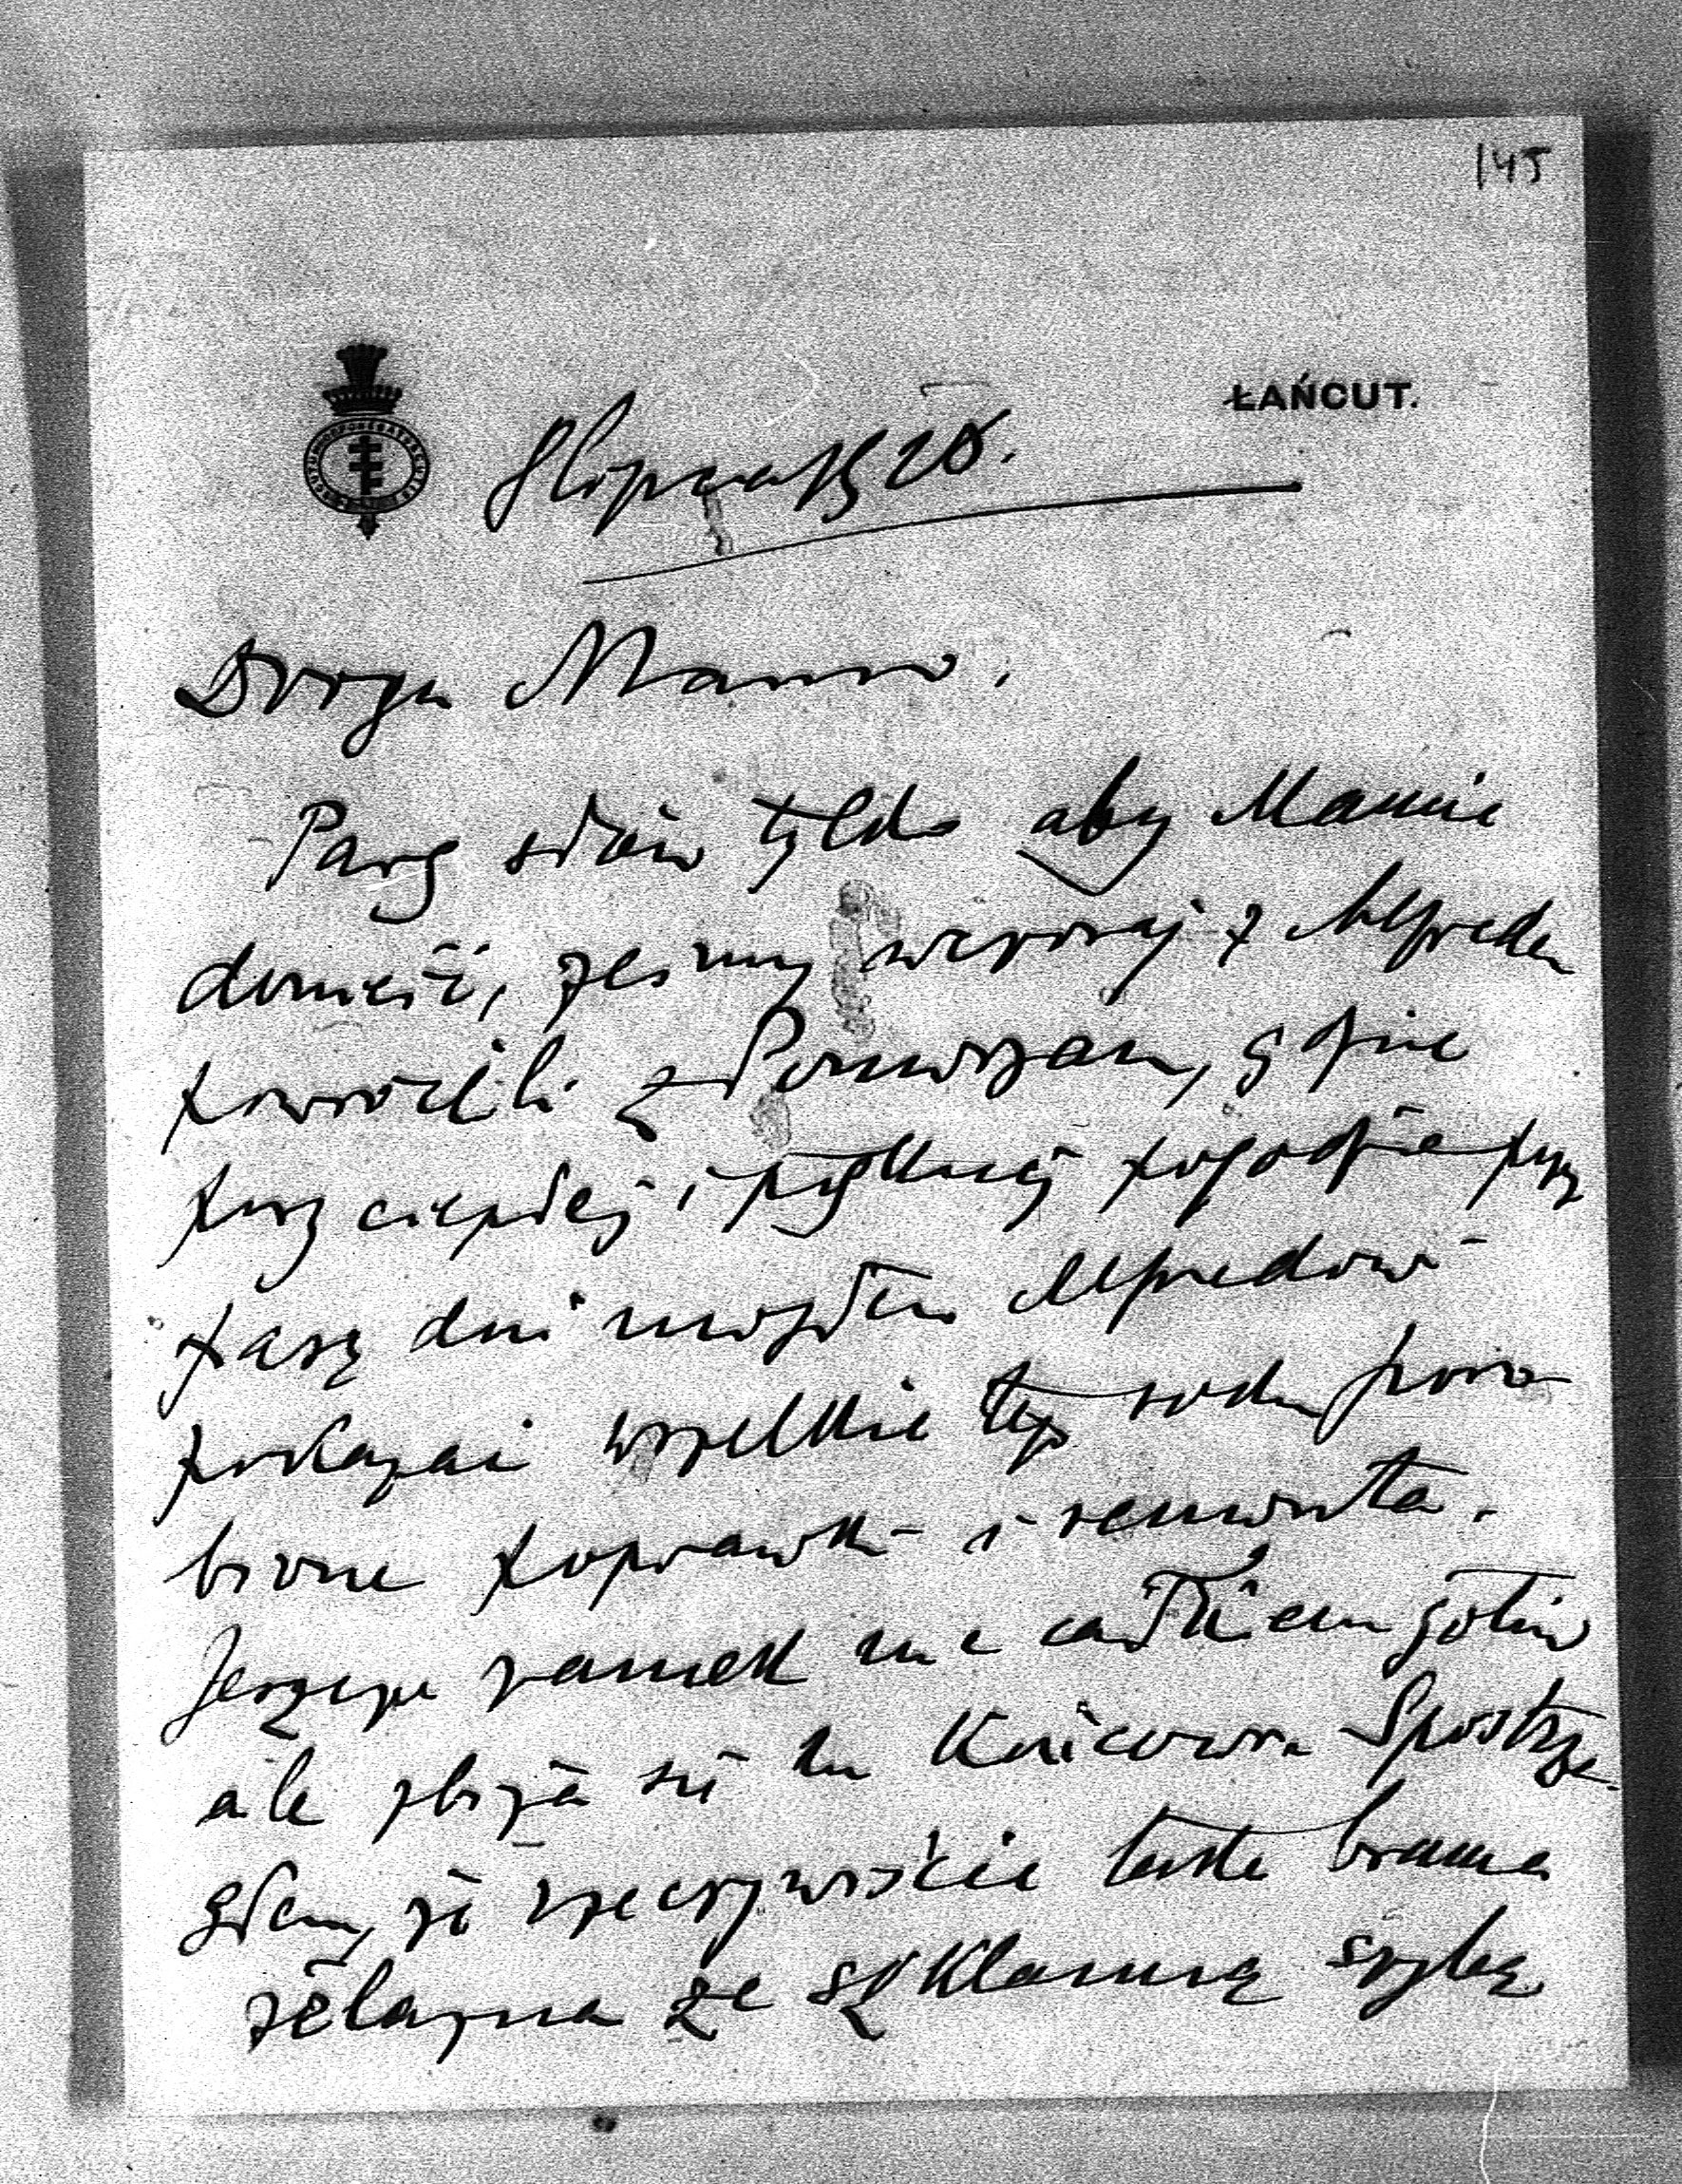 145
ŁAŃCUT.
Droga Mamo.
Parę słów tylko aby Mamie
donieść, żeśmy wczoraj z Alfredem
powrócili z Pomorzan, gdzie
przy ciepłej i pięknej pogodzie przez
parę dni mogłem Alfredowi
pokazać wszelkie tego roku poro-
bione poprawki i remonta.
Jeszcze zamek nie całkiem gotów
ale zbliża się ku końcowi. Spostrze-
głem, że rzeczywiście taka brama
żelazna ze szklanną szybą